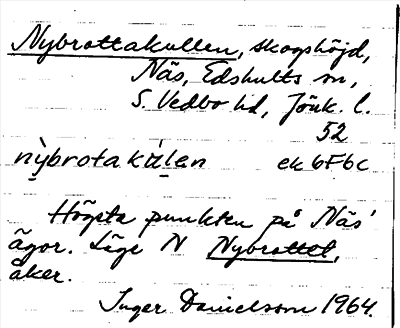 Nybrottakullen, skogshöjd,
Näs, Edshults sn,
S. Vedbo hd, Jönk. l.
52
nỳbrotakálen ek 6F6c
Högsta punkten på Näs'
ägor. Läge N Nybrottet,
åker.
Inger Danielsson 1964.